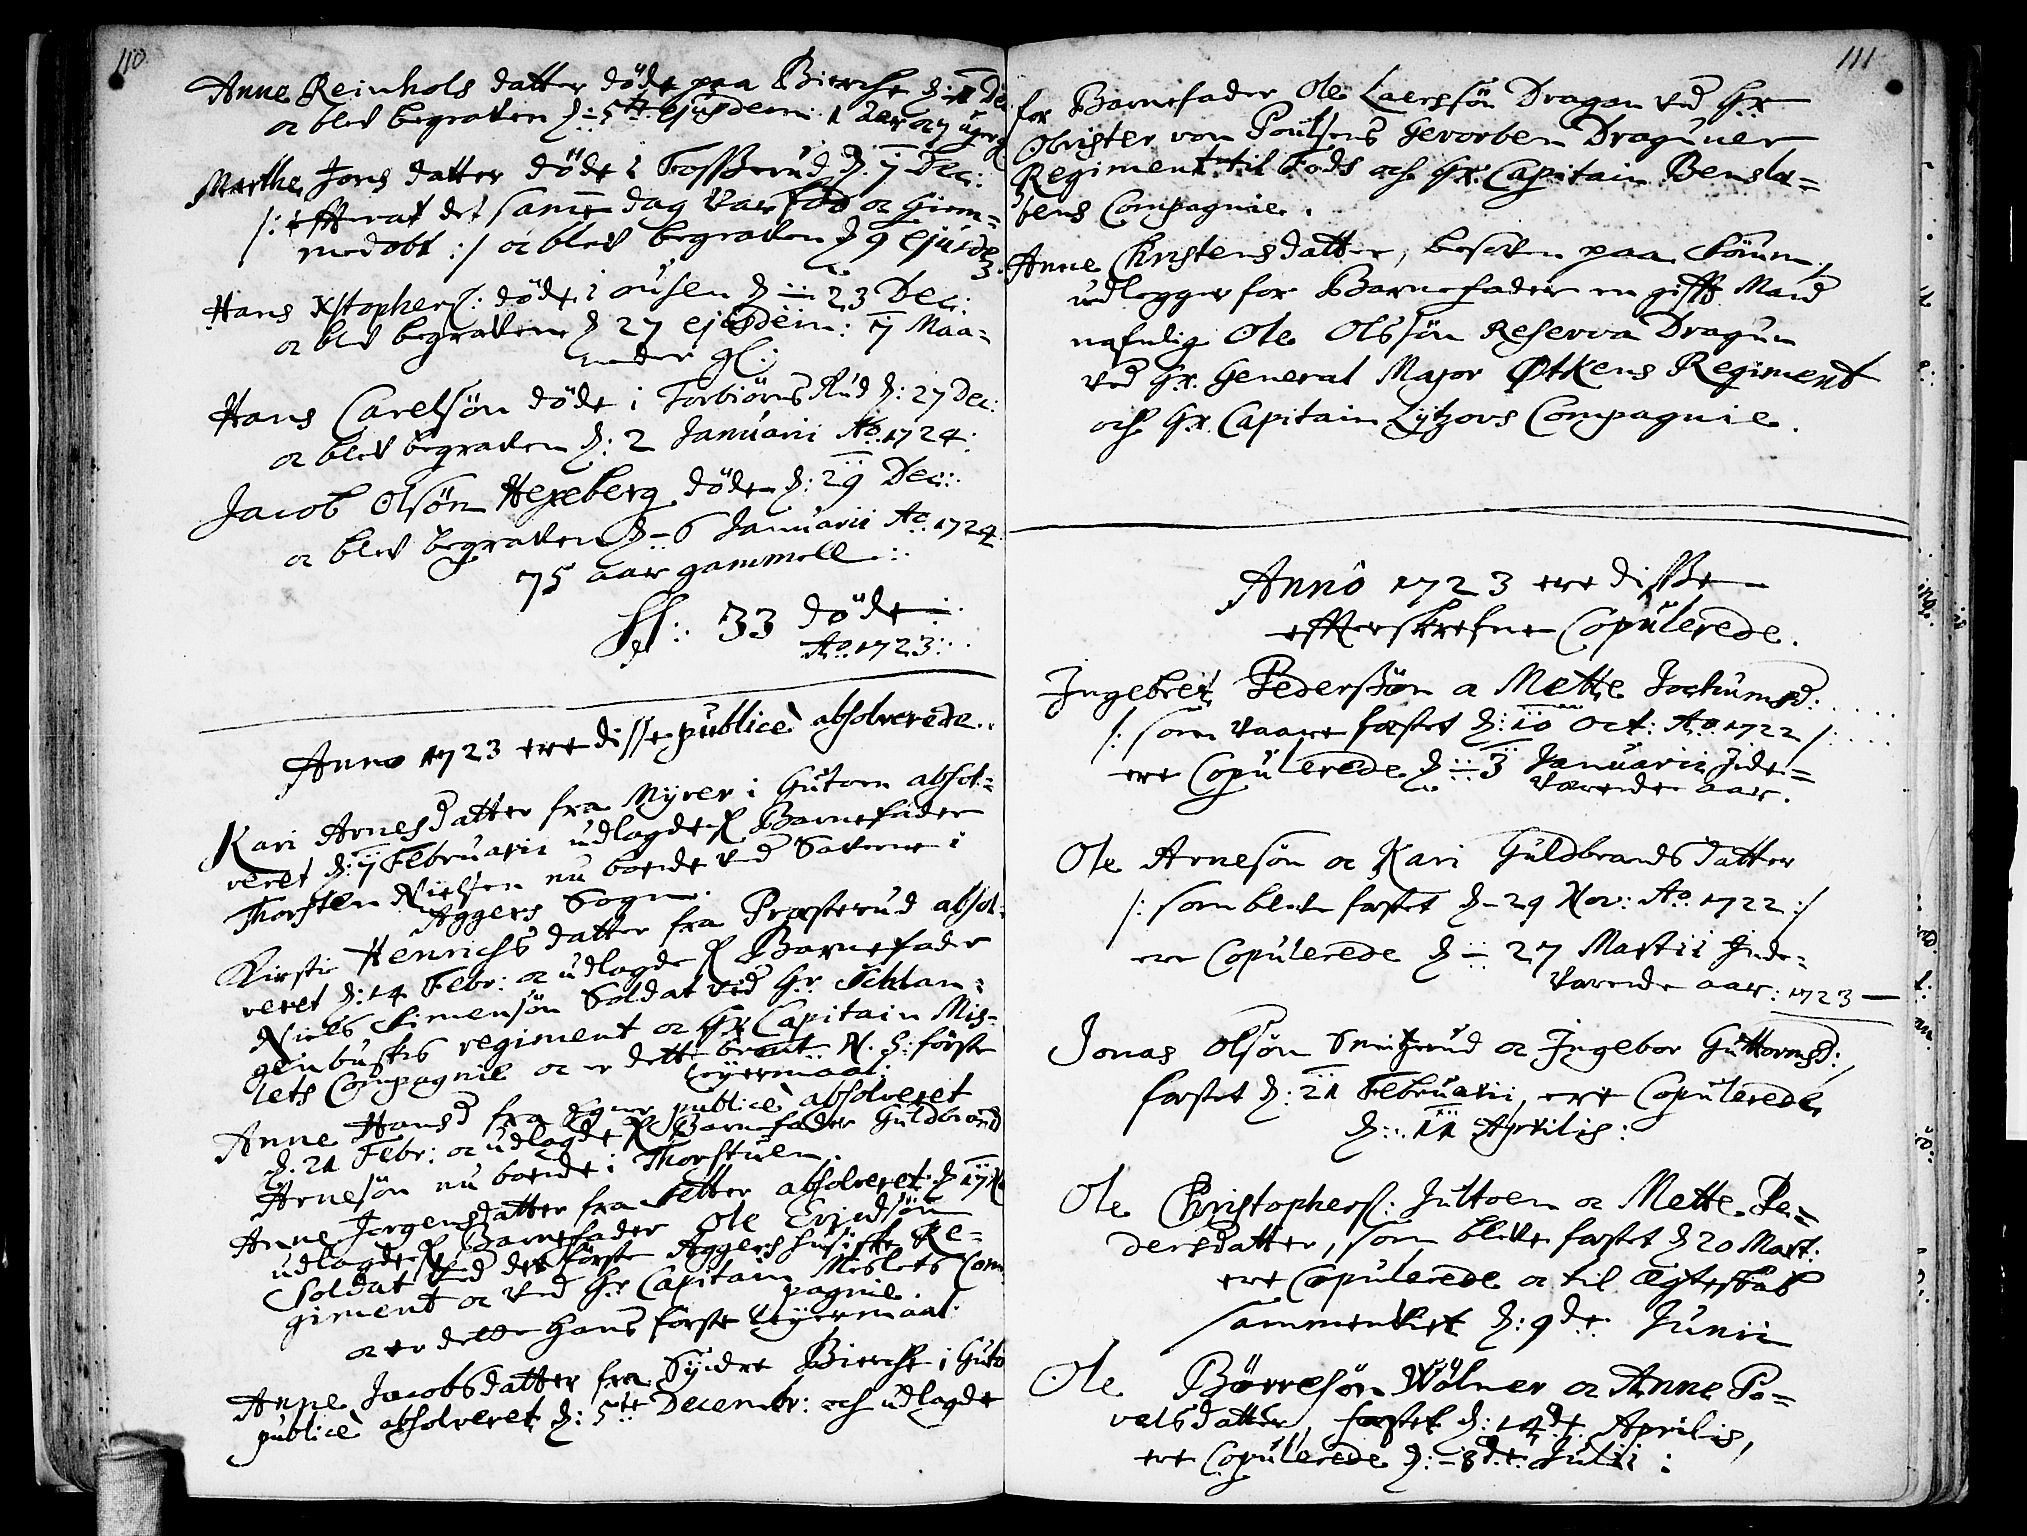 110
Anne Reinhols datter döde paa Bierche d: 1 De
oc blev begraven d: 5te ejusdem: 1 aar og 7 uger
Marthe Jons datter döde i Tosserud d. 7 Dec:
/: efterat det samme dag var fød oc hiem=
medøbt :/ oc blev begraven d 9 ejusde
Hans Xstophers: döde i ousen d 23 Dec:
oc blev begraven d 27 ejusdem: 7 Maa=
neder gl:
Hans Carelsön döde i Torbiörns Rud d: 27 Dec:
oc blev begraven d: 2 Januarii Ao. 1724:
Jacob Olsön Hexeberg döde d: 29 Dec:
oc blev begraven d 6 Januarii Ao. 1724
75 aar gammell
33 döde
Ao. 1723:
Anno 1723 ere disse publicè absolverede
Kari Arnesdatter fra Myrer i Gutoen absol=
veret d: 7 Februarii udlagde Barnefader
Thorsten Nielsen nu boende ved Saverne i
Aggers Sogn.
Kirstie Henrichs datter fra Præsterud absol=
veret d: 14 Febr: oc udlagde Barnefader
Niels Simensön Soldat ved Hr Schlan=
genbuskes regiment oc Hr Capitain Mis=
lets Compagnie oc er dette bemt. N. S: förste
leyermaal:
Anne Hansd fra publicè absolveret
d. 21 Febr: oc udlagde Barnefader Guldbrand
Arnesön nu boende i Thorstuen.
Anne Jorgensdatter fra Setter absolveret d 17
udlagde Barnefader Ole
Soldat ved det förste Aggershusiske Re=
giment oc ved Hr Capitain Mislets Com
pagnie.
oc er dette hans forste leyermaal
Anne Jacobsdatter fra Syndre Bierche i Guto
publicè absolveret d: 5te Decembr: och udlagde
111
for Barnefader Ole Laerssön Dragon ved Hr
Obrister von Poulsens Gevorben Draguner
Regiment til Fods och Hr. Capitain
Compagnie.
Anne Christensdatter, besoven paa Römm,
udlegger for Barnefader en gifft Mand
nafnlig Ole Olssön Reserva Dragun
ved Hr. General Major Øtkens Regiment
och Hr. Capitain Lÿtzovs Compagnie.
Anno 1723 ere disse
effterskrefne Copulerede.
Ingebret Pederssön oc Mette Jochumsd:
/: som vaare fæstet d: 10 Oct: Ao. 1722 /:
ere Copulerede d 3 Januarii Inde=
værende aar.
Ole Arnesön oc Kari Guldbrands datter
/: som bleve fæstet d- 29 Nov: Ao. 1722 :/
ere Copulerede d 27 Martii Inde=
værende aar: 1723
Jonas Olsön Smitzrud oc Ingebor Guttormsd:
fæstet d: 21 Februarii, ere Copulerede
d: 11 Aprilis:
Ole Christophers: Juttoen oc Mette Pe=
dersdatter, som bleve fæstet d 20 Mart:
ere Copulerede oc til ægteskab
sammenviet d: 9de Junii
Ole Börresön Wölner oc Anne Po=
velsdatter, fæstet d: 14de Aprilis,
ere Copulerede d: 8de Julii: